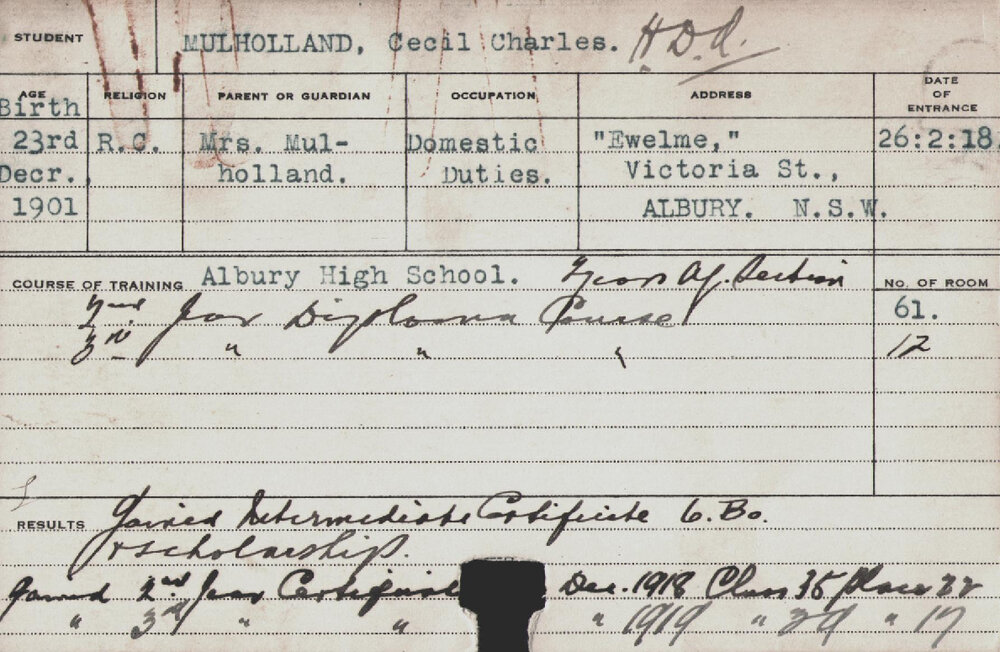 STUDENT MULHOLLAND, Cecil Charles. H.D.A.
AGE RELIGION PARENT OR GUARDIAN OCCUPATION ADDRESS DATE OF ENTRANCE
Birth
23rd R.C. Mrs. Mul- Domestic "Ewelme," 26:2:18.
Decr. holland. Duties. Victoria St.,
1901 ALBURY. N.S.W.
COURSE OF TRAINING Albury High School. Ag. Section NO. OF ROOM
2nd Year Diploma Course 61.
3rd " " " 12
RESULTS Gained Intermediate Certificate 6. Bs.
+ scholarship.
Gained 2nd Year Certificate Dec. 1918 Class 35 place 22
" 3rd " " " 1919 " 29 " 17